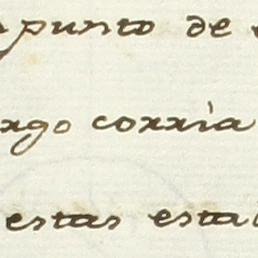 punto de
rgo corria
estas esta